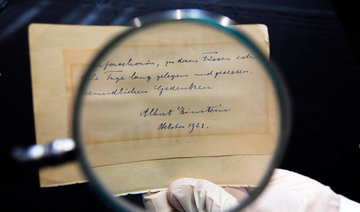 forscherin, zu deren Füssen
Tage lang gelegen und gesessen,
eundlichen Gedenken
Albert Einstein
Oktober 1921.